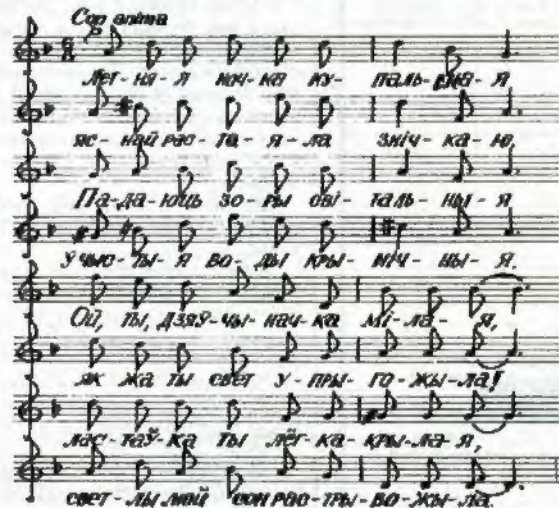 Con anima
Лет-ня-я ноч-ка ку-паль-ная-я
яс-най рас-та-я-ла зніч-ка-ю,
Па-да-юць зо-ры ві-таль-ны-я
У чыс-ты-я во-ды кры-ніч-ны-я.
Ой, ты, дзяў-чы-нач-ка мі-ла-я,
як жа ты свет у-пры-го-жы-ла!
лас-таў-ка ты лёг-ка-кры-ла-я,
свет-лы мой сон рас-тры-во-жы-ла.